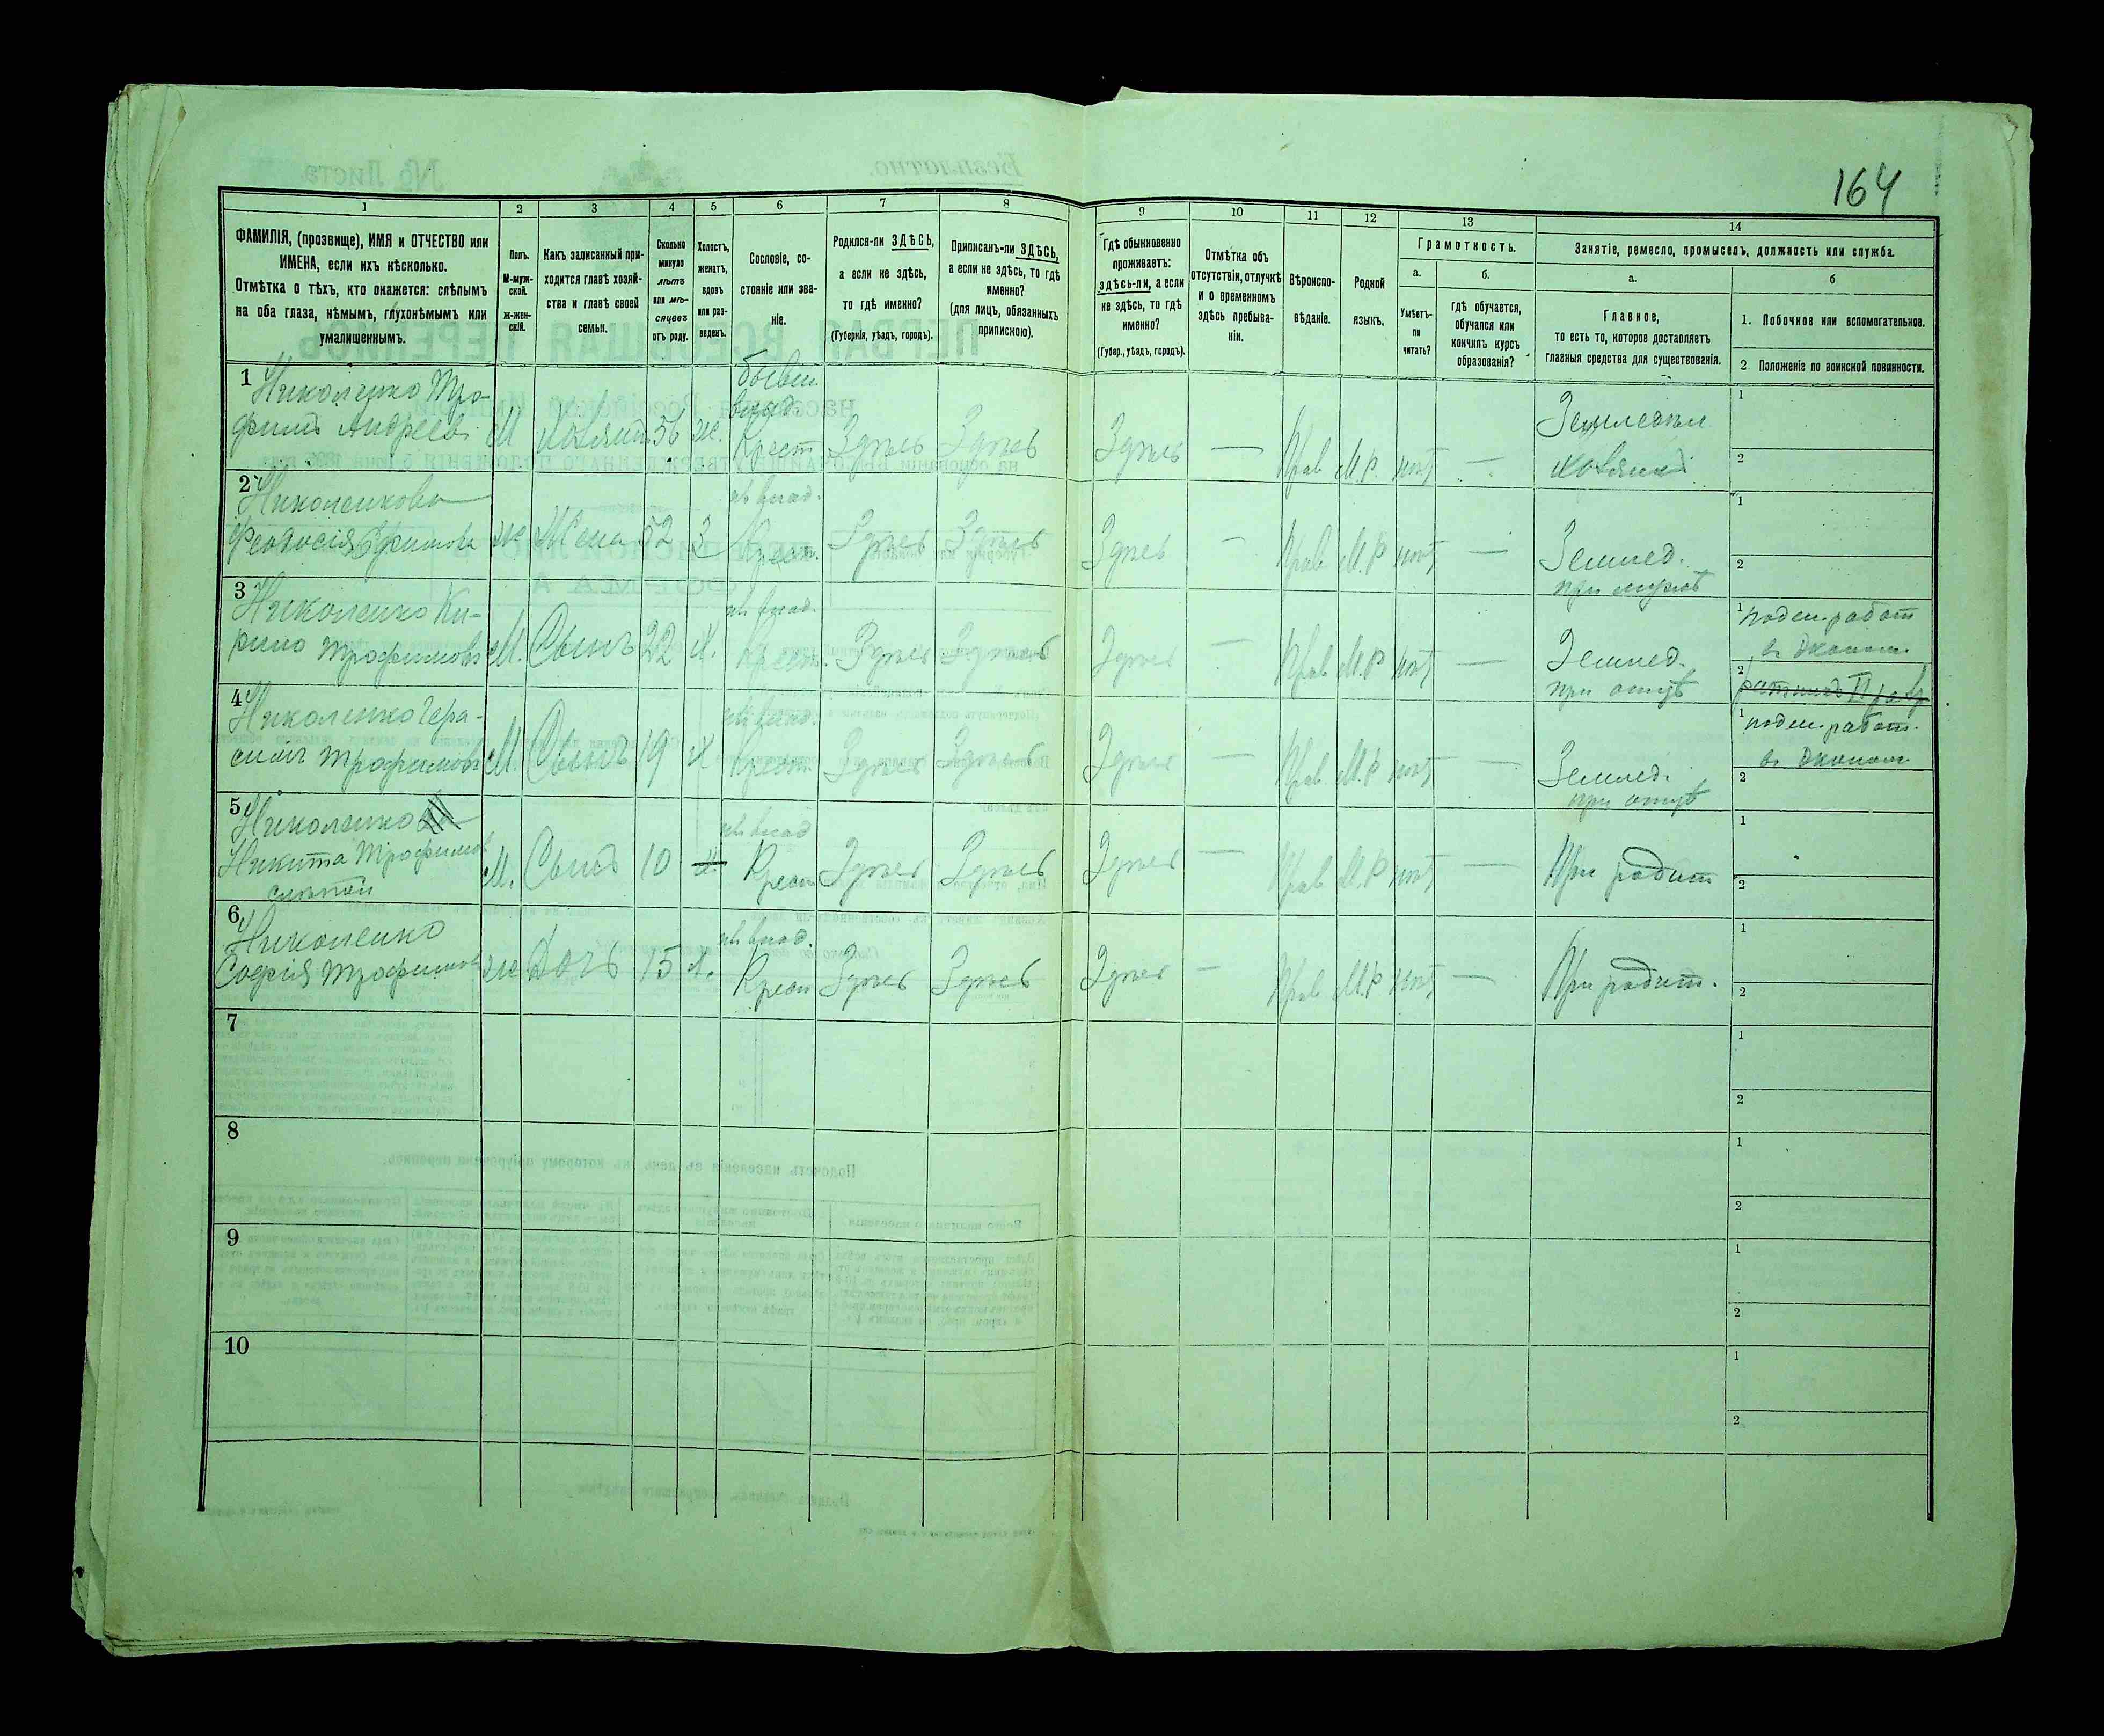 164
1 2 3 4 5 6 7 8 9 10 11 12 13 14
ФАМИЛІЯ, (прозвище), ИМЯ и ОТЧЕСТВО или
ИМЕНА, если ихъ нѣсколько.
Отмѣтка о тѣхъ, кто окажется: слѣпымъ
на оба глаза, нѣмымъ, глухонѣмымъ или
умалишеннымъ.
Полъ.
М-муж-
ской.
ж-жен-
скій.
Какъ записанный при-
ходится главѣ хозяй-
ства и главѣ своей
семьи.
Сколько
минуло
лѣтъ
или мѣ-
сяцевъ
отъ роду.
Холостъ,
женатъ,
вдовъ
или раз-
веденъ.
Сословіе, со-
стояніе или зва-
ніе.
Родился-ли ЗДѢСЬ,
а если не здѣсь,
то гдѣ именно?
(Губернія, уѣздъ, городъ).
Приписанъ-ли ЗДѢСЬ,
а если не здѣсь, то гдѣ
именно?
(для лицъ, обязанныхъ
припискою).
Гдѣ обыкновенно
проживаетъ:
здѣсь-ли, а если
не здѣсь, то гдѣ
именно?
(Губер., уѣздъ, городъ).
Отмѣтка объ
отсутствіи, отлучкѣ
и о временномъ
здѣсь пребыва-
ніи.
Вѣроиспо-
вѣданіе.
Родной
языкъ.
Грамотность.
а.
Умѣетъ-
ли
читать?
б.
гдѣ обучается,
обучался или
кончилъ курсъ
образованія?
Занятіе, ремесло, промыселъ, должность или служба.
а.
Главное,
то есть то, которое доставляетъ
главныя средства для существованія.
б
1. Побочное или вспомогательное.
2. Положеніе по воинской повинности.
1 Николенко Тро-
фимъ Андреевъ М Хозяинъ 56 ж. бывш. влад. Крест Здѣсь Здѣсь Здѣсь — Прав М.Р. нѣтъ — Земледѣл хозяинъ 1 2
2 Николенкова
Феодосія Ефимова ж Жена 52 З влад. Крест. Здѣсь Здѣсь Здѣсь — Прав М.Р нѣтъ — Землед. при мужѣ 1 2
3 Николенко Ки-
рило Трофимовъ М. Сынъ 22 Х. влад. Крест. Здѣсь Здѣсь Здѣсь — Прав М.Р нѣтъ — Землед. при отцѣ 1 поден. работ въ Эконом. 2
4 Николенко Гера-
симъ Трофимовъ М. Сынъ 19 Х влад. Крест. Здѣсь Здѣсь Здѣсь — Прав. М.Р нѣтъ — Землед. при отцѣ 1 поден. работ. въ Эконом 2
5 Николенко
Никита Трофимов
слѣпой М. Сынъ 10 влад Крест Здѣсь Здѣсь Здѣсь — Прав М.Р нѣтъ — При родит 1 2
6 Николенко
Софія Трофимов ж Дочь 15 Х. влад. Крест Здѣсь Здѣсь Здѣсь — Прав М.Р нѣтъ — При родит. 1 2
7 1 2
8 1 2
9 1 2
10 1 2